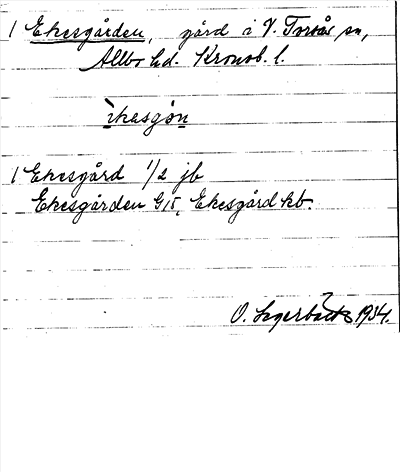 1 Ekesgården, gård å V. Torsås sn,
Allbo hd. Kronob. l.
ìkesgọn
1 Ekesgård 1/2 jb
Ekesgården G15, Ekesgård kb.
O. Lagerbäck 1934.